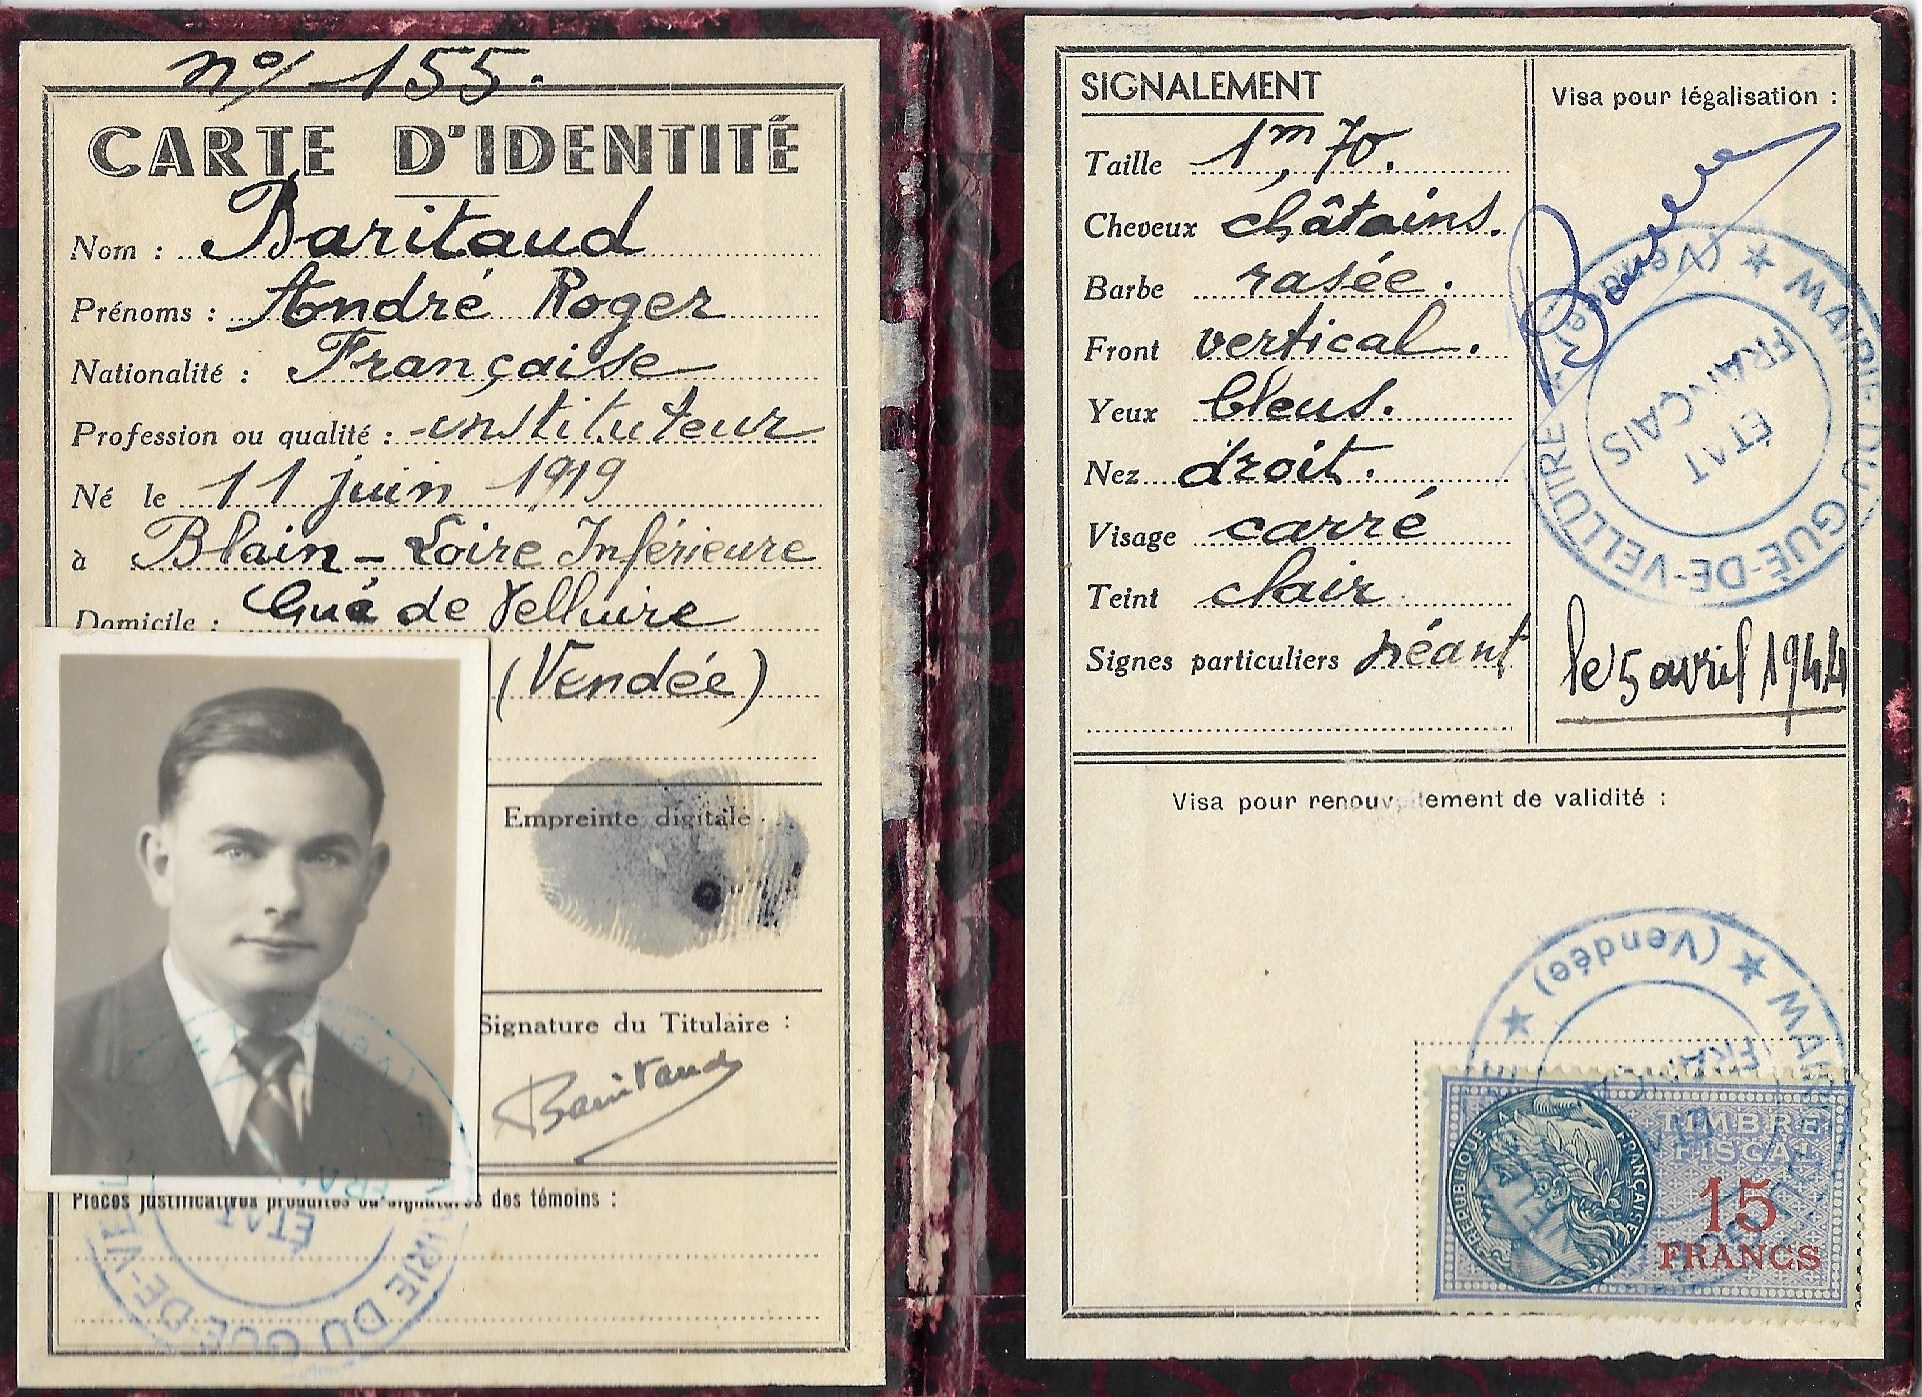 n° 155.
CARTE D'IDENTITÉ
Nom : Baritaud
Prénoms : André Roger
Nationalité : Française
Profession ou qualité : instituteur
Né le 11 juin 1919
à Blain - Loire Inférieure
Domicile : Gué de Velluire
(Vendée)
Empreinte digitale
Signature du Titulaire :
Baritaud
Pièces justificatives produites ou signatures des témoins :
ÉTAT
MAIRIE DU GUÉ-DE-VE
SIGNALEMENT
Taille 1m,70.
Cheveux châtains.
Barbe rasée.
Front vertical.
Yeux bleus.
Nez droit.
Visage carré
Teint clair
Signes particuliers néant
Visa pour légalisation :
MAIRIE DU GUÉ-DE-VELLUIRE
(Vendée)
ÉTAT
FRANÇAIS
le 5 avril 1944
Visa pour renouvellement de validité :
(Vendée)
TIMBRE
FISCAL
15
FRANCS
RÉPUBLIQUE FRANÇAISE